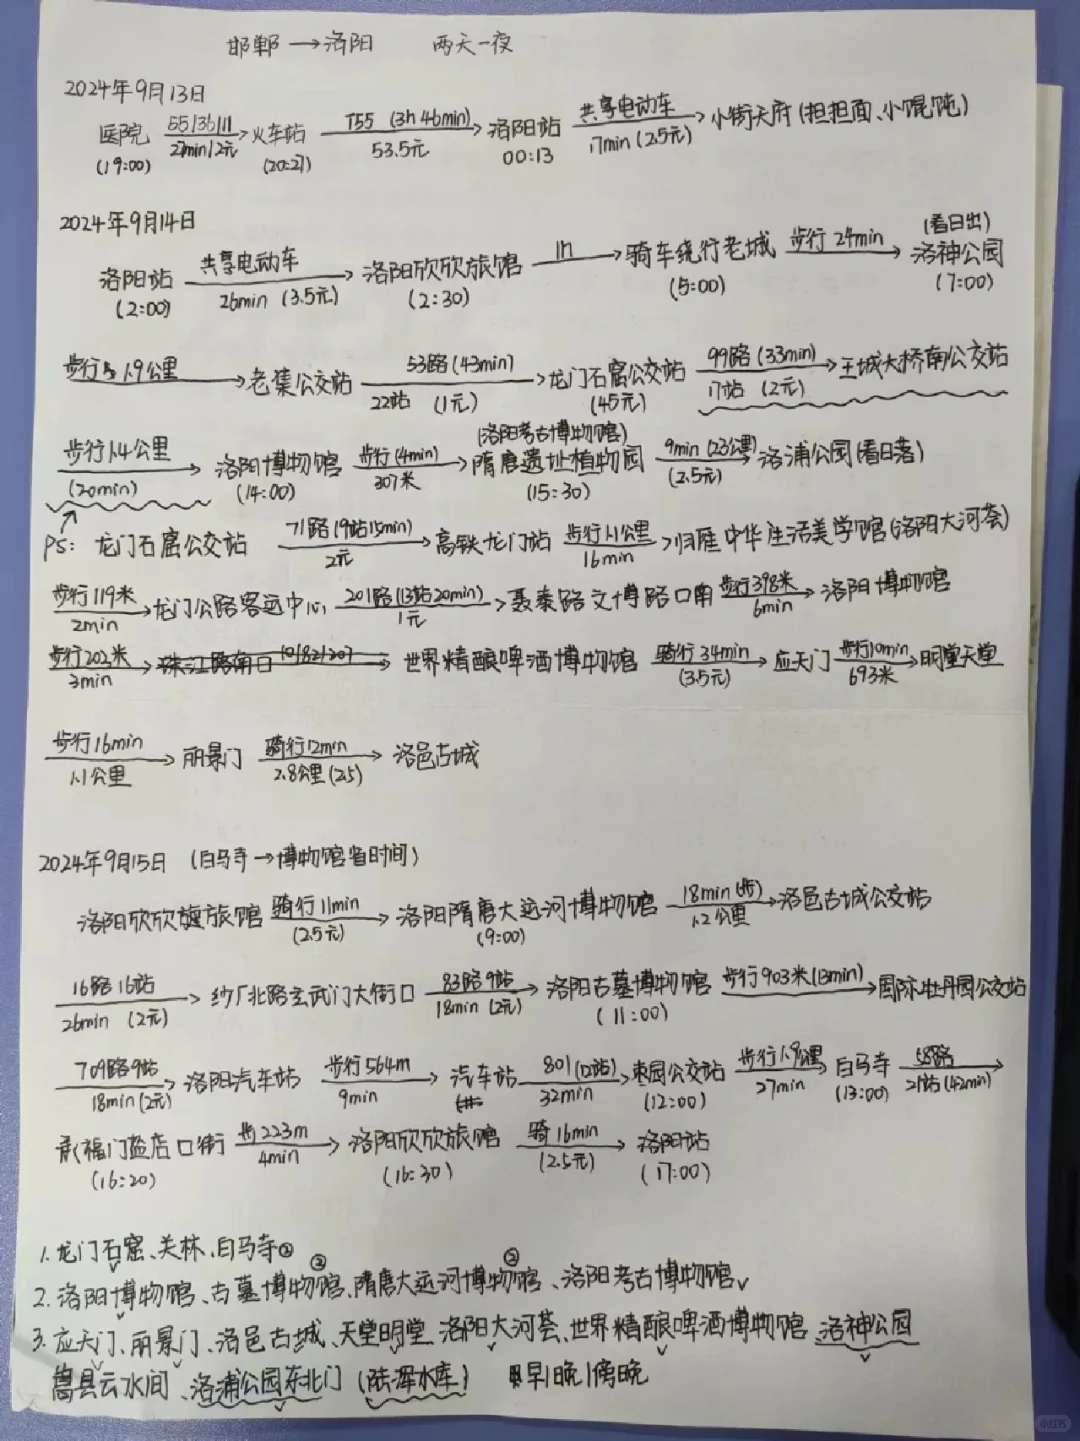 邯郸→洛阳 两天一夜
2024年9月13日
医院 55/36/111 → 火车站 T55 (3h 46min) → 洛阳站 共享电动车 → 小街天府(担担面、小馄饨)
(19:00) 27min/2元 (20:27) 53.5元 00:13 17min (2.5元)
2024年9月14日
(看日出)
洛阳站 共享电动车 → 洛阳欣欣旅馆 1h → 骑车绕行老城 步行24min → 洛神公园
(2:00) 26min (3.5元) (2:30) (5:00) (7:00)
步行 1.9公里 → 老集公交站 53路(43min) → 龙门石窟公交站 99路(33min) → 王城大桥南公交站
22站 (1元) (45元) 17站 (2元)
(洛阳考古博物馆)
步行1.4公里 → 洛阳博物馆 步行(4min) → 隋唐遗址植物园 9min (2.3公里) → 洛浦公园(看日落)
(20min) (14:00) 307米 (15:30) (2.5元)
PS: 龙门石窟公交站 71路(9站15min) → 高铁龙门站 步行1.1公里 → 归雁中华生活美学馆(洛阳大河荟)
2元 16min
步行119米 → 龙门公路客运中心 201路(13站20min) → 聂泰路文博路口南 步行398米 → 洛阳博物馆
2min 1元 6min
步行202米 → 珠江路南口 → 世界精酿啤酒博物馆 骑行34min → 应天门 步行10min → 明堂天堂
3min (3.5元) 693米
步行16min → 丽景门 骑行12min → 洛邑古城
1.1公里 2.8公里(2.5)
2024年9月15日 (白马寺→博物馆省时间)
洛阳欣欣旅馆 骑行11min → 洛阳隋唐大运河博物馆 18min(步) → 洛邑古城公交站
(2.5元) (9:00) 1.2公里
16路16站 → 纱厂北路玄武门大街口 83路9站 → 洛阳古墓博物馆 步行903米(13min) → 国际牡丹园公交站
26min (2元) 18min (2元) (11:00)
709路9站 → 洛阳汽车站 步行564m → 汽车站 801(12站) → 枣园公交站 步行1.9公里 → 白马寺 58路 →
18min(2元) 9min 32min (12:00) 27min (13:00) 21站(42min)
承福门盐店口街 步223m → 洛阳欣欣旅馆 骑16min → 洛阳站
(16:20) 4min (16:30) (2.5元) (17:00)
1. 龙门石窟、关林、白马寺②
2. 洛阳博物馆、古墓博物馆②、隋唐大运河博物馆②、洛阳考古博物馆
3. 应天门、丽景门、洛邑古城、天堂明堂、洛阳大河荟、世界精酿啤酒博物馆、洛神公园
嵩县云水间、洛浦公园东北门(陆浑水库) 早/晚/傍晚
小红书